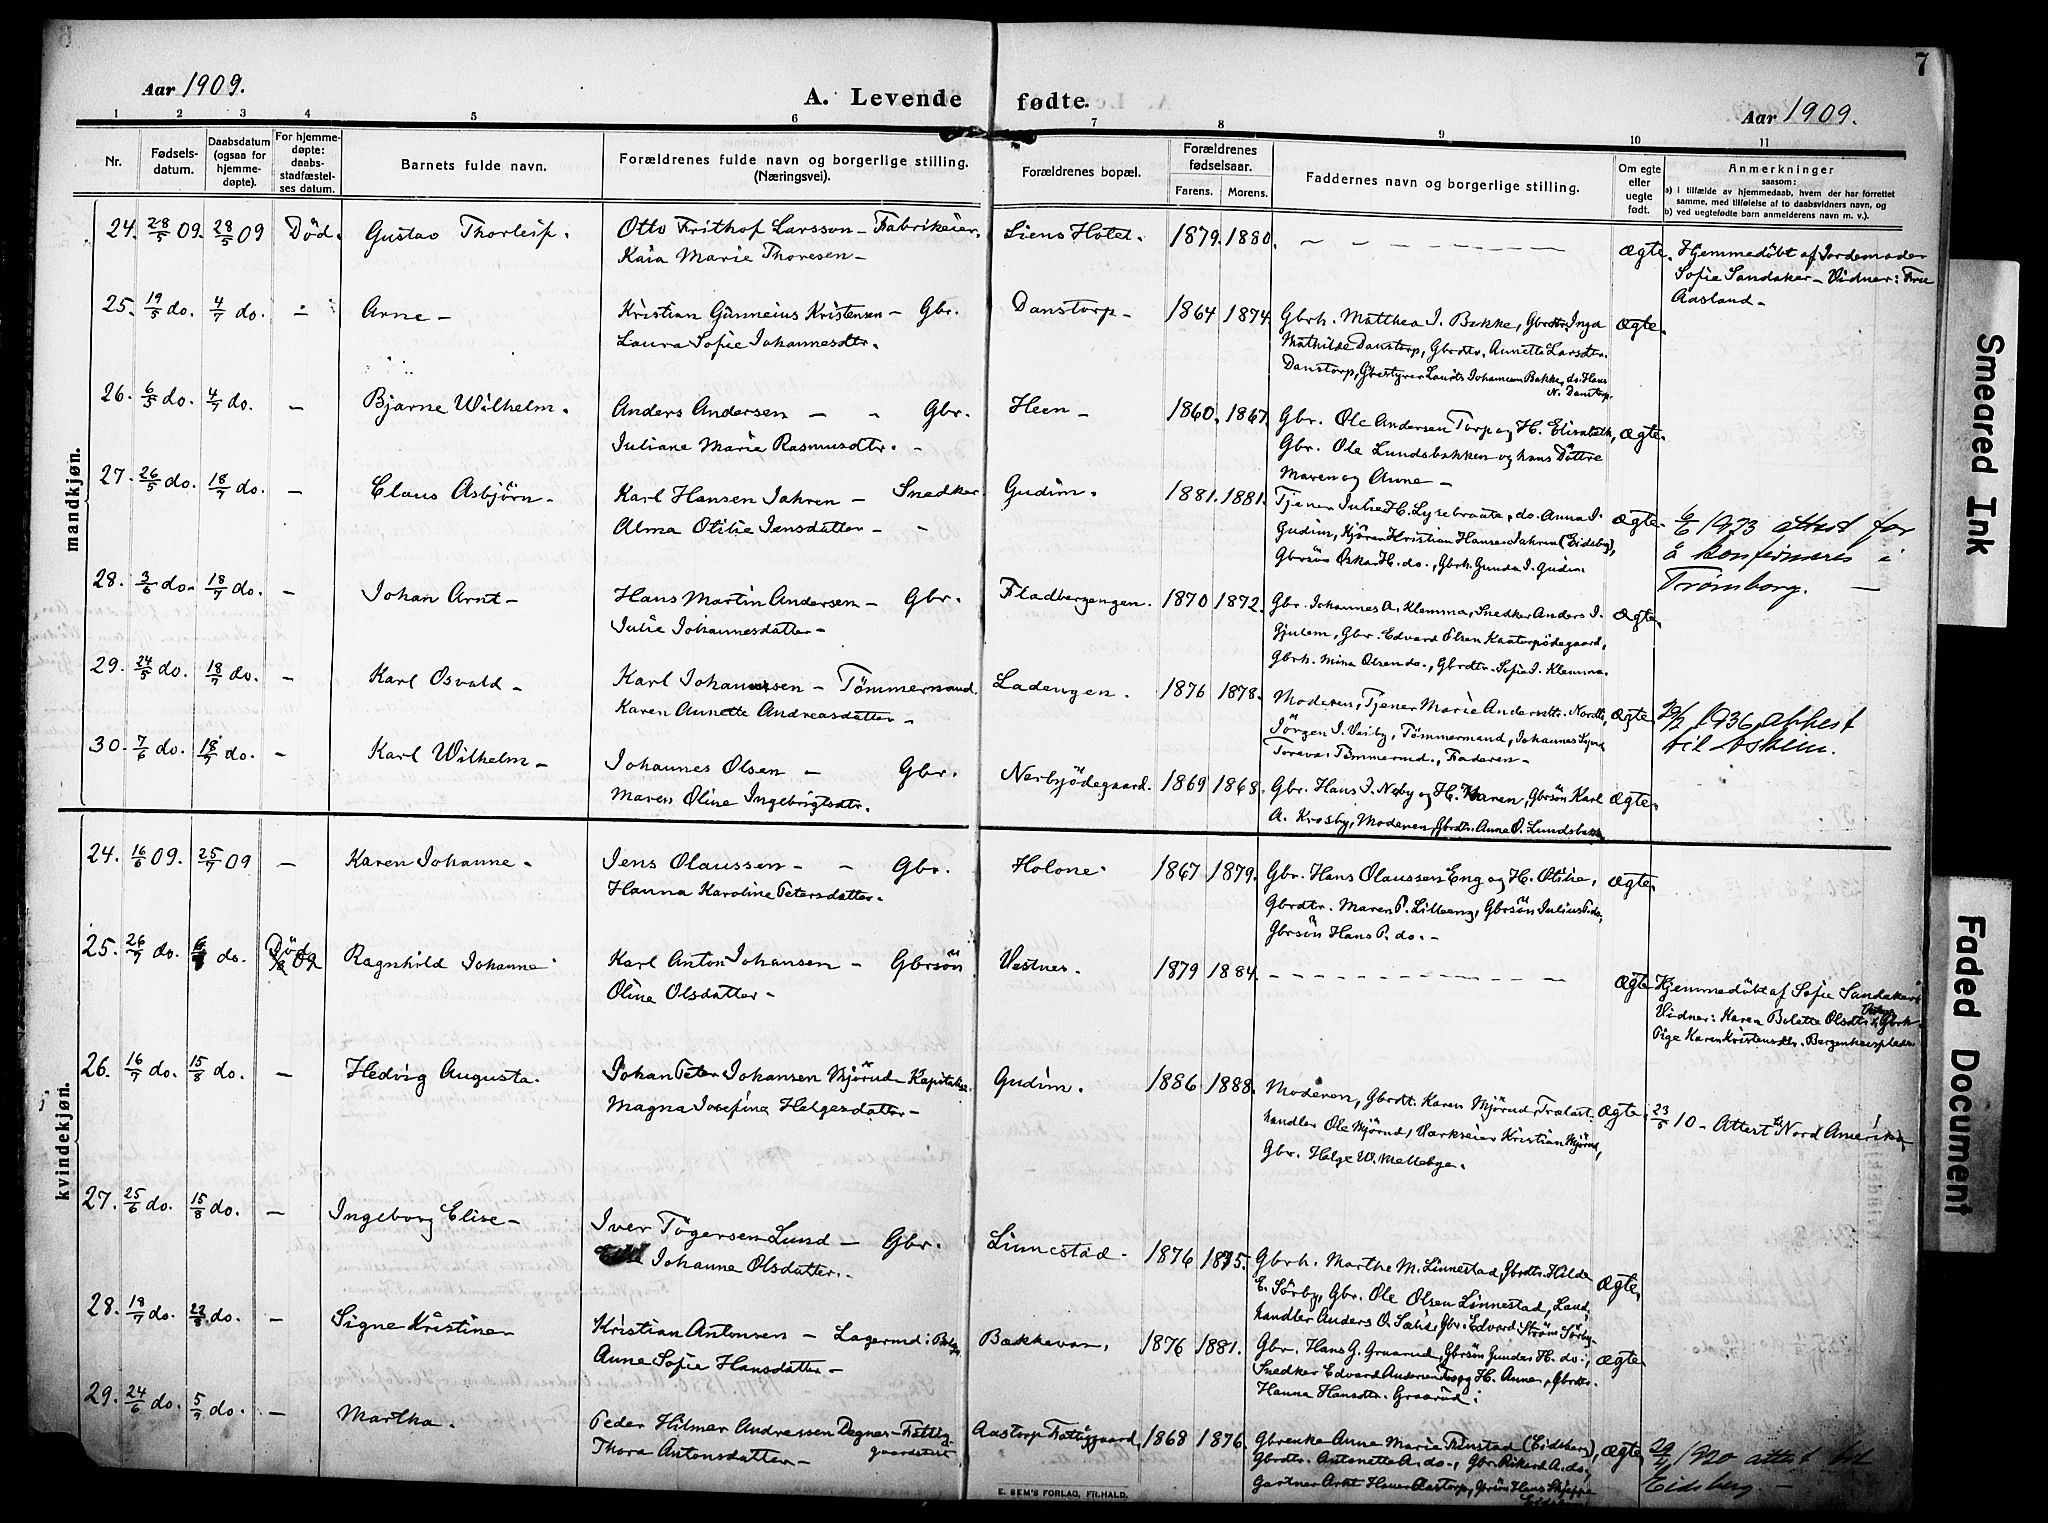 7
Aar 1909.
A. Levende fødte.
Aar 1909.
1 2 3 4 5 6 7 8 9 10 11
Nr.
Fødsels-
datum.
Daabsdatum
(ogsaa for
hjemme-
døpte).
For hjemme-
døpte:
daabs-
stadfæstel-
ses datum.
Barnets fulde navn.
Forældrenes fulde navn og borgerlige stilling.
(Næringsvei).
Forældrenes bopæl.
Forældrenes
fødselsaar.
Farens. Morens.
Faddernes navn og borgerlige stilling.
Om egte
eller
uegte
født.
Anmerkninger
saasom:
a) i tilfælde av hjemmedaab, hvem der har forrettet
samme, med tilføielse af to daabsvidners navn, og
b) ved uegtefødte barn anmelderens navn m. v.).
mandkjøn.
24. 28/5 09. 28/5 09 Död. Gustav Thorleif. Otto Frithof Larsson – Fabrikeier. Liens Hotel. 1879. 1880. – – – ægte. Hjemmedöbt af Jordemoder
Kaia Marie Thoresen – Sofie Sandaker – Vidner: Fru
Aasland –
25. 19/5 do. 4/7 do. – Arne – Kristian Gunneius Kristensen – Gbr. Danstorp – 1864 1874. Gbrh. Matthea J. Bakke, Gbrdtr. Inga ægte.
Laura Sofie Johannesdtr. Mathilde Danstorp, Gbrdtr. Annette Larsdtr.
Danstorp, Gbestyrer Laurits Johansen Bakke, do. Hans
N. Danstorp.
26. 6/5 do. 4/7 do. – Bjarne Wilhelm. Anders Andersen – – Gbr. Heen – 1860. 1867. Gbr. Ole Andersen Torp og H. Elisabeth, ægte.
Juliane Marie Rasmusdtr. – Gbr. Ole Lundsbakken og hans Döttre
Maren og Anne –
27. 26/5 do. 18/7 do. – Claus Asbjörn – Karl Hansen Jahren – Snedker. Gudim. 1881. 1881. Tjener Julie H. Lysebraate, do. Anna J. ægte. 6/6 1923 attest for
Alma Otilie Jensdatter – – Gudim, Kjörer Kristian Hansen Jahren (Eidsby), å konfirmeres i
Gbrsön Oskar H. do., Gbrh. Gunda J. Gudim Trømborg. –
28. 3/6 do. 18/7 do. – Johan Arnt – Hans Martin Andersen – Gbr. Fladbergengen. 1870 1872. Gbr. Johannes A. Klemma, Snedker Anders J. ægte.
Julie Johannesdatter – Gjulem, Gbr. Edvard Olsen Kaatorpödegaard,
Gbrh. Mina Olsen do., Gbrdtr. Sofie J. Klemma.
29. 24/5 do. 18/7 do. – Karl Osvald – Karl Johannesen – Tömmermand. Ladengen. 1876 1878. Moderen, Tjener Marie Andersdtr. Nordli, ægte. 1936 attest
Karen Annette Andreasdatter – Jörgen J. Visby, Tømmermand, Johannes til Askim.
Fadern –
30. 7/6 do. 18/7 do. – Karl Wilhelm – Johannes Olsen – Gbr. Nerbyödegaard. 1869 1868. Gbr. Hans J. Nerby og H. Karen, Gbrsön Karl ægte.
Maren Oline Ingebrigtsdtr. A. Krosby, Moderen, Gbrdtr. Anne O. Lundsbakken
kvindekjøn.
24. 16/6 09. 25/7 09 – Karen Johanne – Jens Olaussen – – Gbr. Holone. 1867 1879. Gbr. Hans Olaussen Eng og H. Otilie, ægte.
Hanna Karoline Petersdatter. Gbrdtr. Maren P. Lilleeng, Gbrsön Julius P. do,
Gbrsön Hans P. do. –
25. 26/7 do. do. Död 09 Ragnhild Johanne Karl Anton Johansen – Gbrsön Vestnes. 1879 1884. – – – ægte Hjemmedöbt af Sofie Sandaker
Oline Olsdatter – Vidner: Karen Bolette Olsdtr.
Pige Karen Kristensdtr.
26. 16/7 do. 15/8 do. – Hedvig Augusta. Johan Peter Johansen Mjörud – Gudim. 1886 1888. Moderen, Gbrdtr. Karen Mjörud, Trælast- ægte. 23/5 10 – Attest til Nord Amerika
Magna Josefine Helgesdatter – handler Ole Mjörud, Værkseier Kristian Mjörud,
Gbr. Helge W. Mellebye.
27. 25/6 do. 15/8 do. – Ingeborg Elise – Iver Tögersen Lund – Gbr. Linnestad – 1876 1875. Gbrh. Marthe M. Linnestad, Gbrdtr. Hilda ægte.
Johanne Olsdatter. E. Sörby, Gbr. Ole Olsen Linnestad, Land-
handler Anders O. Sælid, Gbr. Edvard Ström Sörby
28. 18/7 do. 22/8 do. – Signe Kristine Kristian Antonsen – Lagermd. i Bakkevan. 1876 1881. Gbr. Hans G. Graarud, Gbrsön Gunder H. do., ægte
Anne Sofie Hansdatter – Snedker Edvard Andersen og H. Anna, Gbrdtr.
Hanna Hansdtr. Graarud.
29. 24/6 do. 5/9 do. – Martha. Peder Hilmer Andreassen Degnes – Fattig- Aastorp Fattiggaard, 1868 1876. Gbrenke Anne Marie Finstad (Eidsberg), ægte 1920 attest til
Thora Antonsdatter – gaardsbest. Gbrdtr. Antonette A. do., Gbr. Rikard A. do, Eidsberg –
Gartner Arnt Aastorp, Gbrsön Hans Skjeppe
E. SEM'S FORLAG, FR.HALD.
Smeared Ink
Faded Document